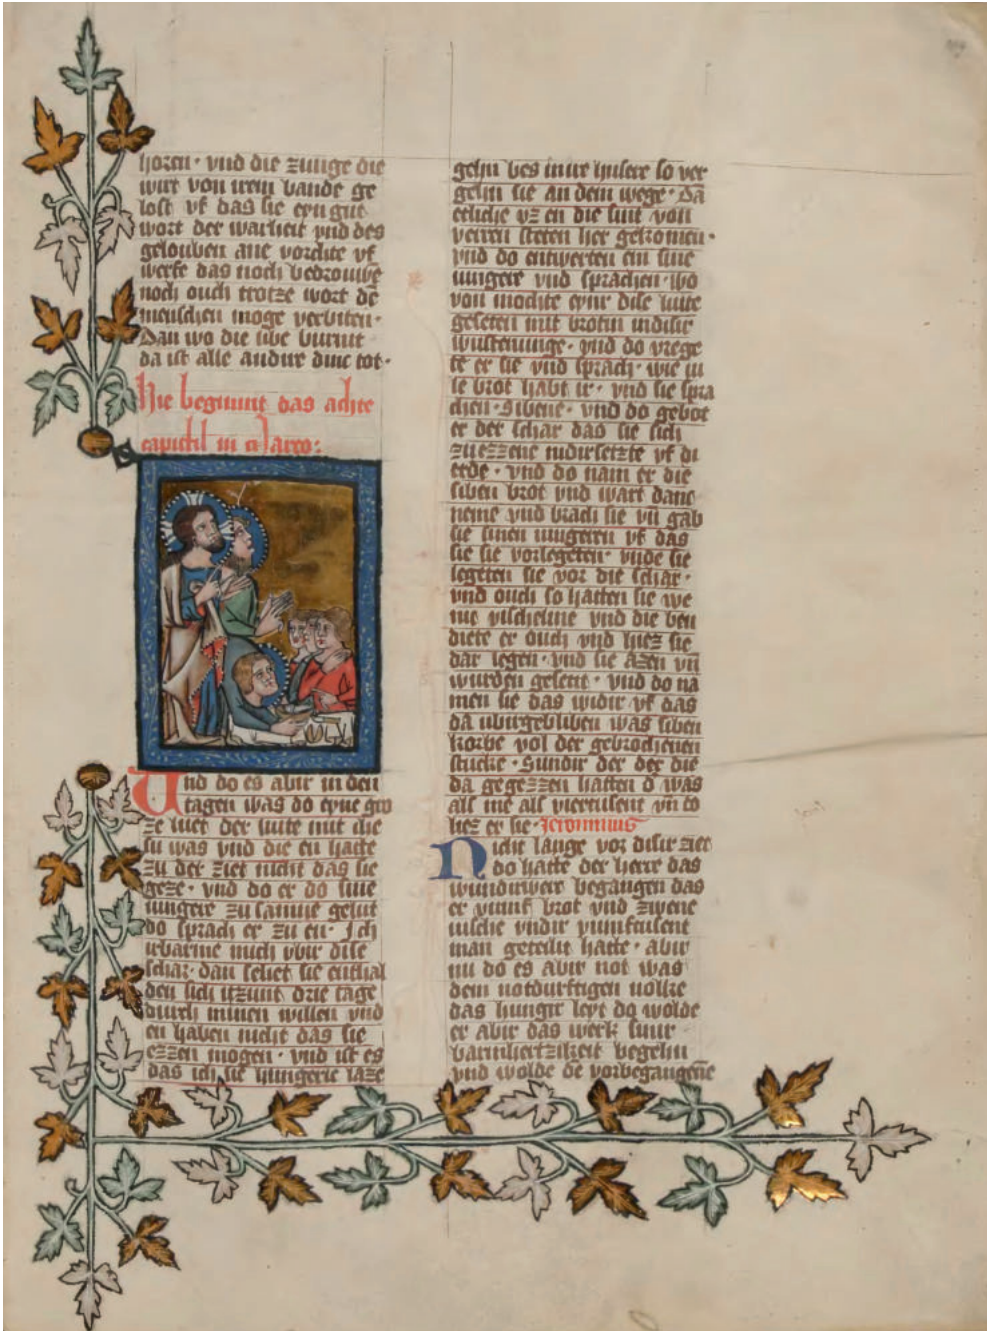 horen · vnd die zunge die
wirt von irem bande ge
lost vf das sie eyn gut
wort der warheit vnd des
gelouben ane vorchte vf
werfe das noch bedrouwe
noch ouch trotze wort de
menschen moge verbiten ·
Dan wo die libe burnit
da ist alle andir dinc tot ·
Hie beginnit das achte
capittil in marco :
Vnd do es abir in den
tagen was do eyne gro
ze luet der lute mit ihe
su was vnd die en hatte
zu der ziet nicht das sie
geze · vnd do er do sine
iungere zu samne gelut
do sprach er zu en · Ich
irbarme mich vbir dise
schar · dan sehet sie enthal
den sich itzunt drie tage
durch minen willen vnd
en haben nicht das sie
ezzen mogen · vnd ist es
das ich sie hungeric laze
gehn bes in ire husere so ver
gehn sie an dem wege · Da
etliche vz en die sint von
verren steten her gekomen ·
vnd do entwerten em sine
iungere vnd sprachen · wo
von mochte eynr dise lute
geseten mit brotin indisir
wustenunge · vnd do vrege
te er sie vnd sprach · wie vi
le brot habt ir · vnd sie spra
chen · Sibene · vnd do gebot
er der schar das sie sich
zu ezzene nidirsetzte vf di
erde · vnd do nam er die
siben brot vnd wart danc
neme vnd brach sie vn gab
sie sinen iungeren vf das
sie sie vorlegeten · vnde sie
legeten sie vor die schar ·
vnd ouch so hatten sie we
nic vischeline vnd die ben
diete er ouch vnd hiez sie
dar legen · vnd sie azen vn
wurden gesetit · vnd do na
men sie das widir vf das
da ubirgebliben was siben
korbe vol der gebrochenen
stucke · Sundir der der die
da gegezzen hatten d was
als me als viertusent vn to
liez er sie · Jeronimus
Nicht lange vor disir ziet
do hatte der herre das
wundirwerc begangen das
er vumf brot vnd zwene
uische vndir vumftusent
man geteilit hatte · abir
nu do es abir not was
dem notdurftigen volke
das hunger leyt do wolde
er abir das werk sinir
barmhertzikeit begehn
vnd wolde de vorbegangene